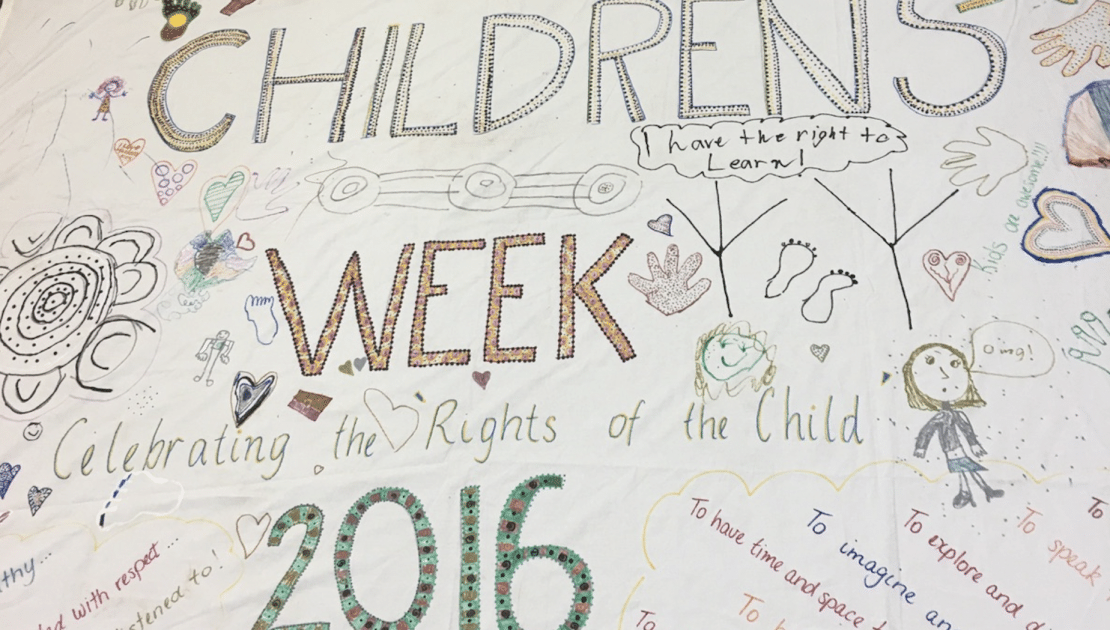 CHILDRENS
I have the right to
Learn!
Kids are awesome!!!
WEEK
omg!
Celebrating the Rights of the Child
2016
thy...
with respect...
stened to!
To have time and space
To imagine an
To explore and
To speak
To
To
To